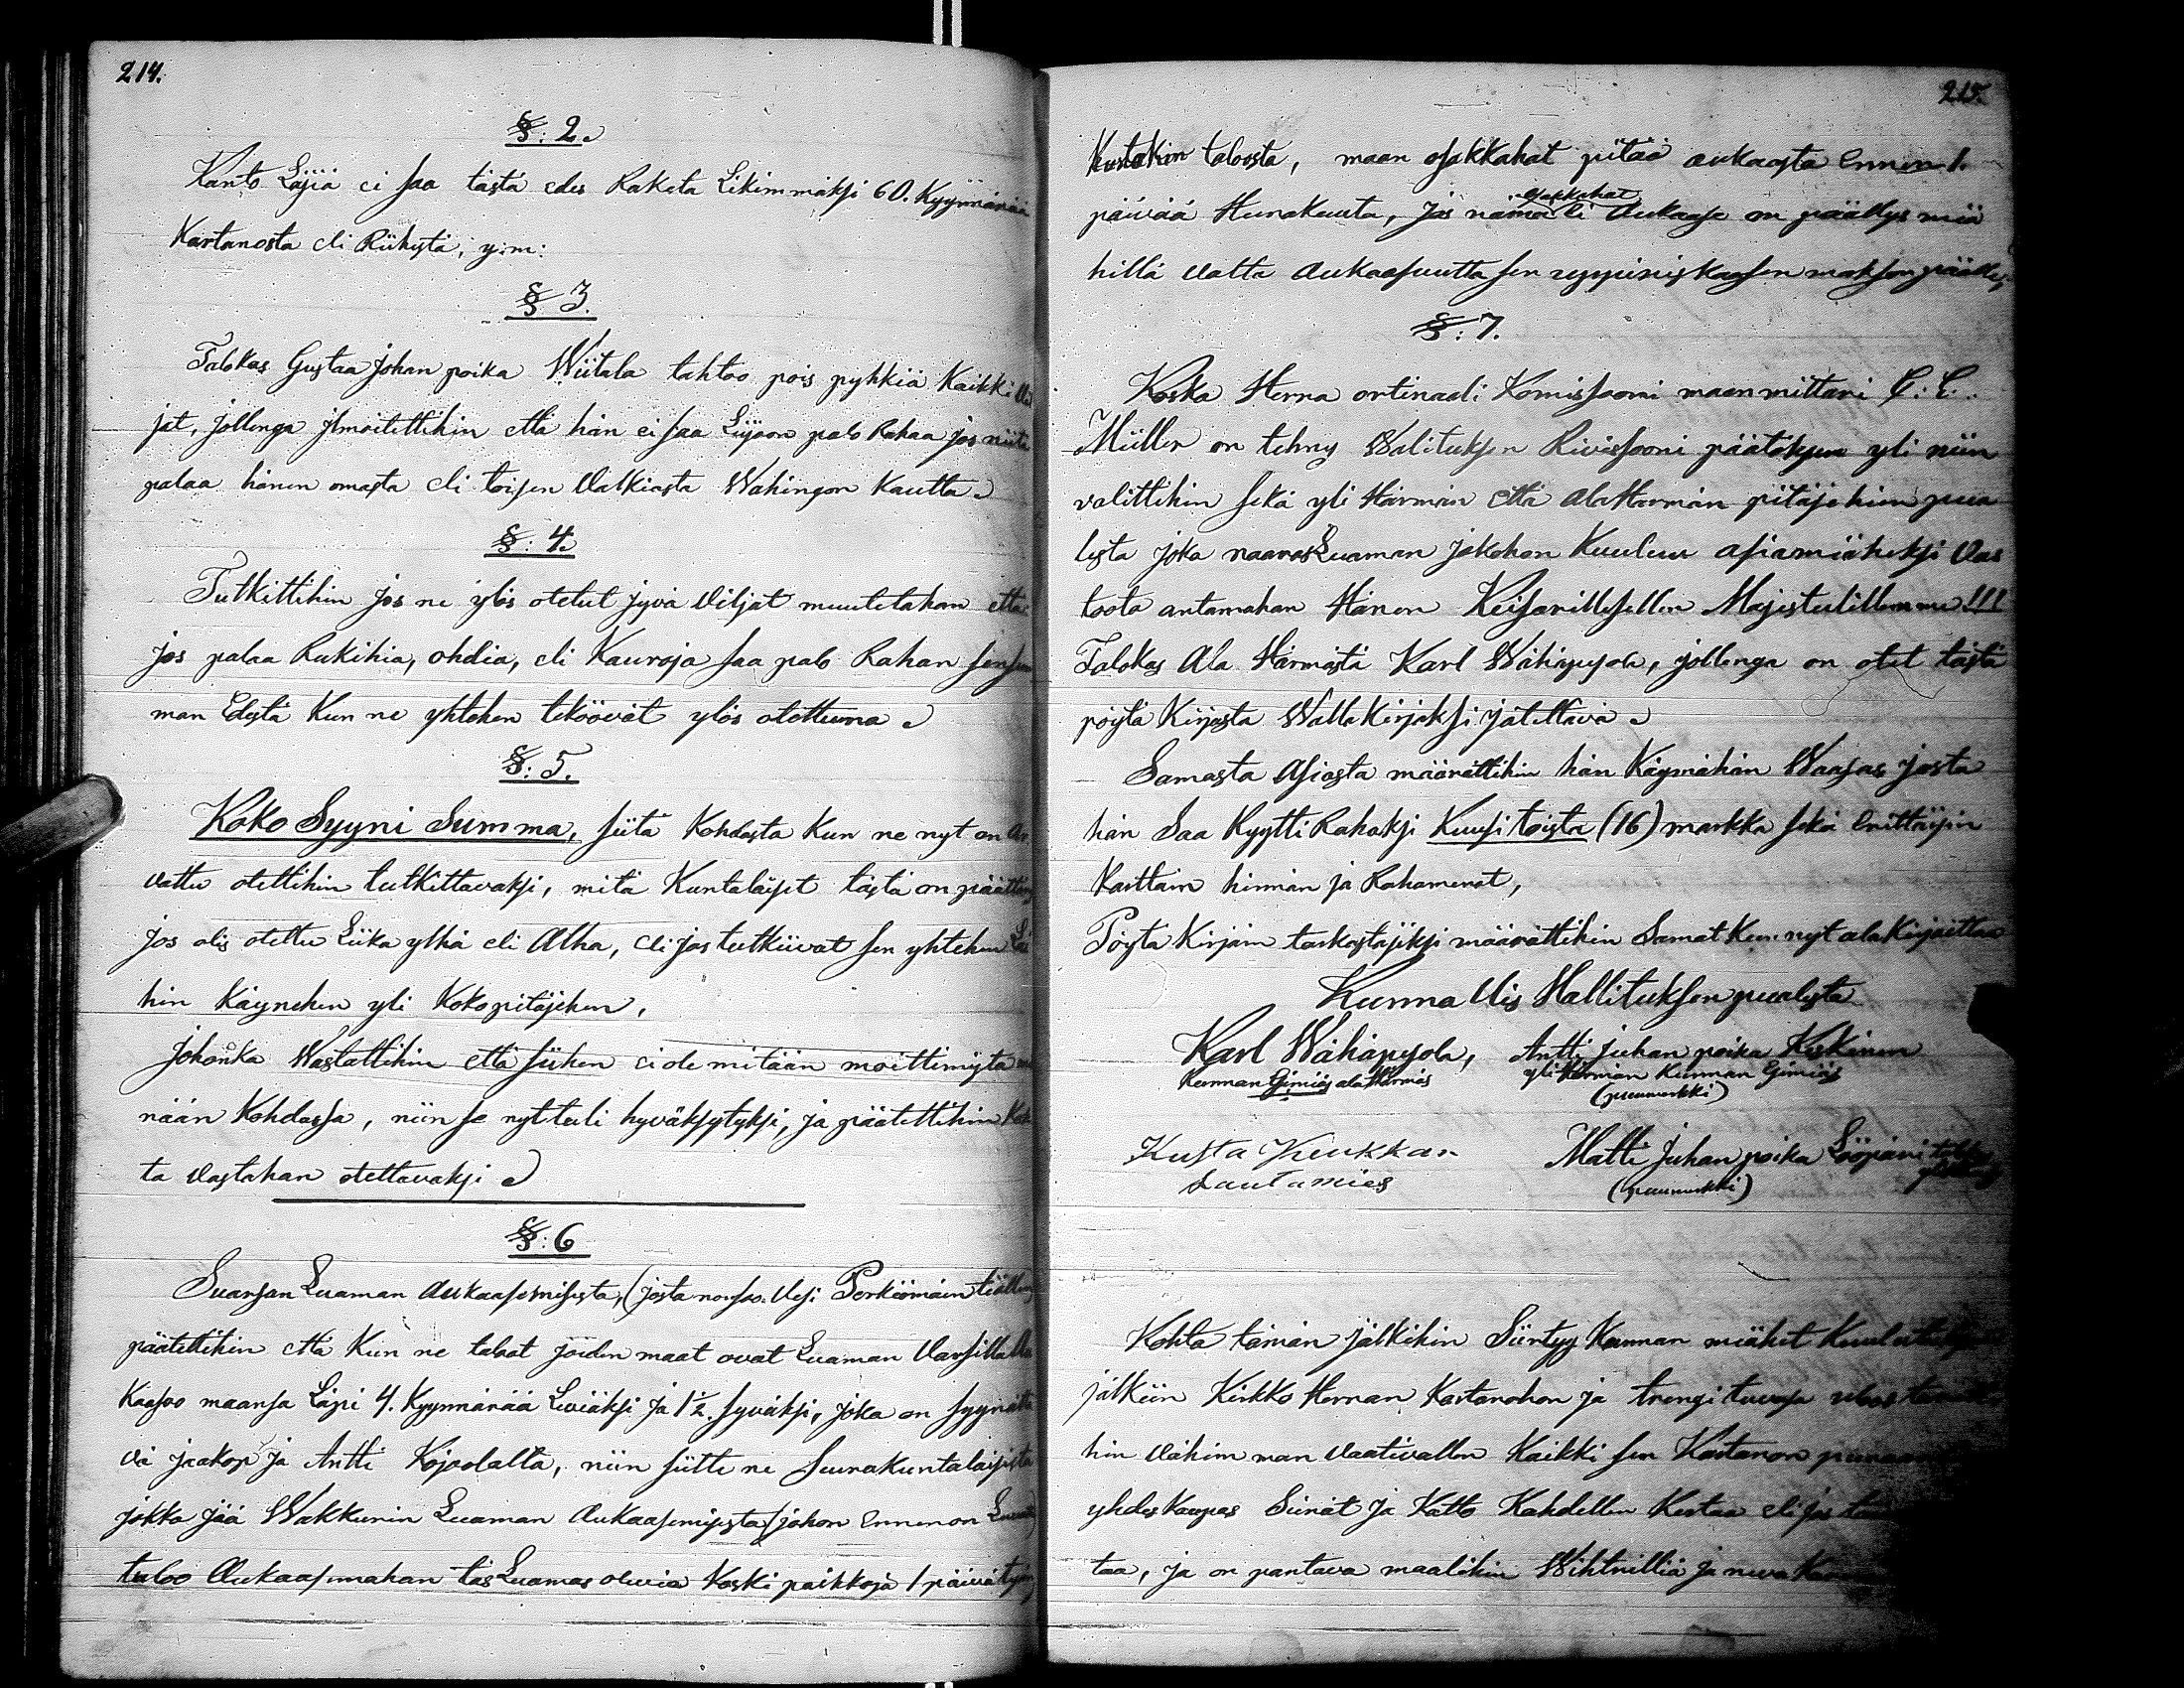 214.
§: 2.
Kanto Läjiä ei saa tästä edes Raketa Likimmäksi 60. Kyynärää
Kartanosta eli Riihestä, y:m:
§ 3.
Talokas Gustaa Johan poika Wiitala tahtoo pois pyhkiä Kaikki
jat, jollenga ilmoitettihin että hän ei saa Lujoon palo Rahaa jos niitä
palaa hänen omasta eli toisen Valkiasta Wahingon Kautta
§: 4.
Tutkittihin jos ne ylös otetut jyvä Viljat muutetahan että
jos palaa Rukihia, ohdia, eli Kauroja saa palo Rahan
man Edestä Kun ne yhtehen teköövät ylös otettuina
§: 5.
Koko Syyni Summa, siitä Kohdasta Kun ne nyt on Ar
vattu otettihin tutkittavaksi, mitä Kuntalaiset tästä on päättäny
jos olis otettu Liika ylhä eli Alha, eli jos tutkiivat sen yhtehen
hin Käynehen yli Koko pitäjehen,
Johonka Wastattihin että siihen ei ole mitään moittimista
nään Kohdassa, niin se nyt tuli hyväksytyksi, ja päätettihin
ta vastahan otettavaksi
§: 6
Suarsan Luaman Aukaasemisesta, (josta nousoo Vesi Porköömäin tiällen)
päätettihin että Kun ne talaat joiden maat ovat Luaman Varsilla Au
Kaasoo maansa Läpi 4. Kyynärää Leviäksi ja 1½. syväksi, joka on syynätä
vä jaakop ja Antti Kojoolalta, niin sitte ne Seurakuntalaisista
jokka jää Wakkurin Luaman Aukaasemisesta (johon Ennen on
tuloo Aukaasemahan täs Luamas olevia Koski paikkoja 1 päivä työn
215.
Kustakin taloosta, maan osakkahat pitää aukaasta Ennen 1.
osakkahat
päivää Heinäkuuta, jos nämä ei Aukaase on päällys miä
hillä valta Aukaasuutta sen
§: 7.
Koska Herra ortinaali Komissooni maanmittari C: E.
Müller on tehny Walituksen Rivissooni päätöksen yli niin
valittihin sekä yli Härmän että Ala Härmän pitäjehien pua
lesta joka naaras Luaman jakohon Kuuluu asiamiäheksi Vas
toota antamahan Hänen Keisarillisellen Majesteetillemme!!!
Talokas Ala Härmästä Karl Wähäpesola, jollenga on otet tästä
pöytä Kirjasta Walta Kirjaksi jätettävä
Samasta Asiasta määrättihin hän Käymähän Waasas josta
hän Saa Kyytti Rahaksi Kuusitoista (16) markka sekä Erittäisin
Karttain hinnan ja Rahamenot,
Pöytä Kirjain tarkastajiksi määrättihin Samat Kun nyt alakirjoittaa
Kunna Uis Hallituksen puolesta
Karl Wähäpesola, Antti juhan poika Keskinen
Kunnan Esimiäs alaHärmäs yliHärmän Kunnan Esimiäs
(puumerkki)
Kusta Keukkan Matti Juhan poika Lööpäri
Lautamies (puumerkki)
Kohta tämän jälkihin Siirtyy Kunnan miähet Kuulutuksen
jälkiin Kirkko Herran Kartanohon ja trengi tuvasa
hin vähimmän vaativallen Kaikki sen Kartanon
yhdes Kaupas Seinät ja Katto Kahdellen Kertaa eli jos
taa, ja on pantava maalihin Wihtrilliä ja